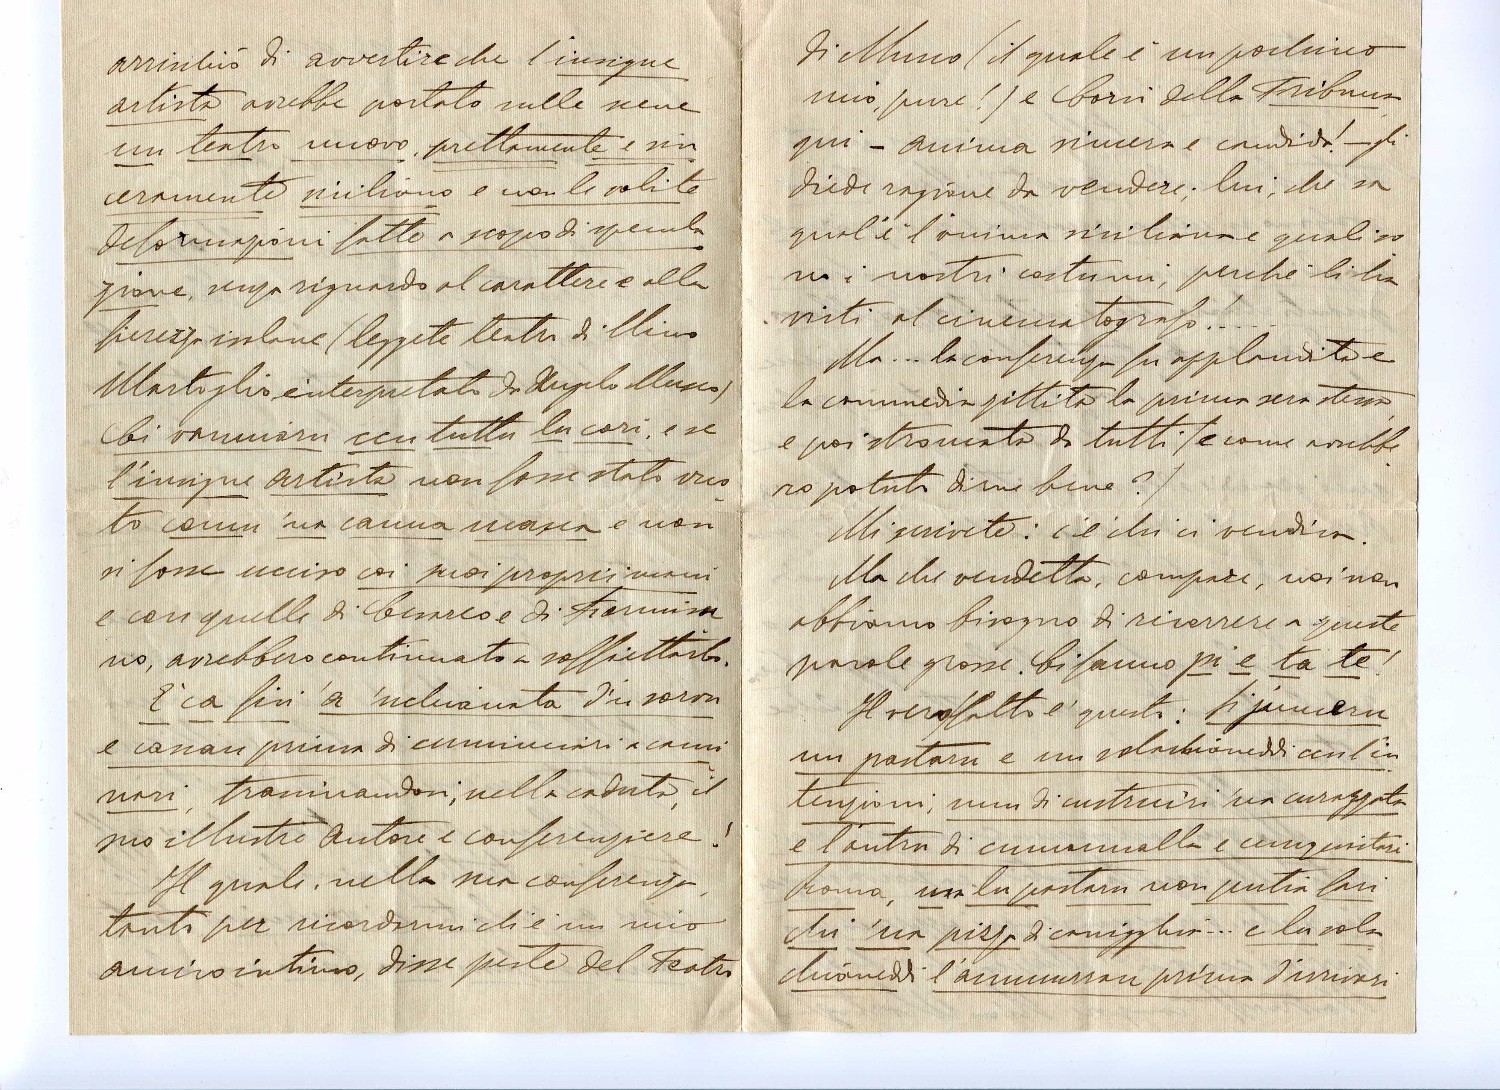 arrischiò di avvertire che l'insigne
artista avrebbe portato sulle scene
un teatro nuovo, prettamente e sin
ceramente siciliano e non le solite
deformazioni fatte a scopo di specula
zione, senza riguardo al carattere e alla
fierezza isolane (leggete teatro di Nino
Martoglio interpretato da Angelo Musco)
Ci vannieru cu tuttu lu cori, e se
l'insigne artista non fosse stato vuo
to comu 'na canna e non
si fosse ucciso coi suoi proprii mani
e con quelle di Cesareo e di
no, avrebbero continuato a soffiettarlo.
E ca fici 'a 'nchianata d'u
e prima di cuminciari a cami
nari, trascinandosi, nella caduta, il
suo illustre autore e conferenziere!
Il quale, nella sua conferenza,
tanto per ricordarmi ch'è un mio
amico intimo, disse peste del Teatro
di Musco (il quale è un pochino
mio, pure!) e Corsi della Tribuna
qui – anima sincera e candida! – gli
diede ragione da vendere; lui, che sa
qual'è l'anima siciliana e quali so
no i nostri costumi, perché li ha
visti al cinematografo!....
Ma... la conferenza fu applaudita e
la commedia la prima sera stessa
e poi stroncata da tutti (e come avreb
ro potuto dirne bene?)
Mi scrivete: c'è chi ci vendica.
Ma che vendetta, compare, noi non
abbiamo bisogno di ricorrere a queste
parole grosse. Ci fanno pi e ta te!
Il vero fatto è questo: Si junceru
un pastaru e un cu l'in
tenzioni, unu di custruiri 'na curazzata
e l'autru di cumannalla e cunquistari
Roma, ma lu pastaru non putia fari
chi 'na pizza di canigghia... e lu sula
chianeddi l'ammuccau prima d'arrivari